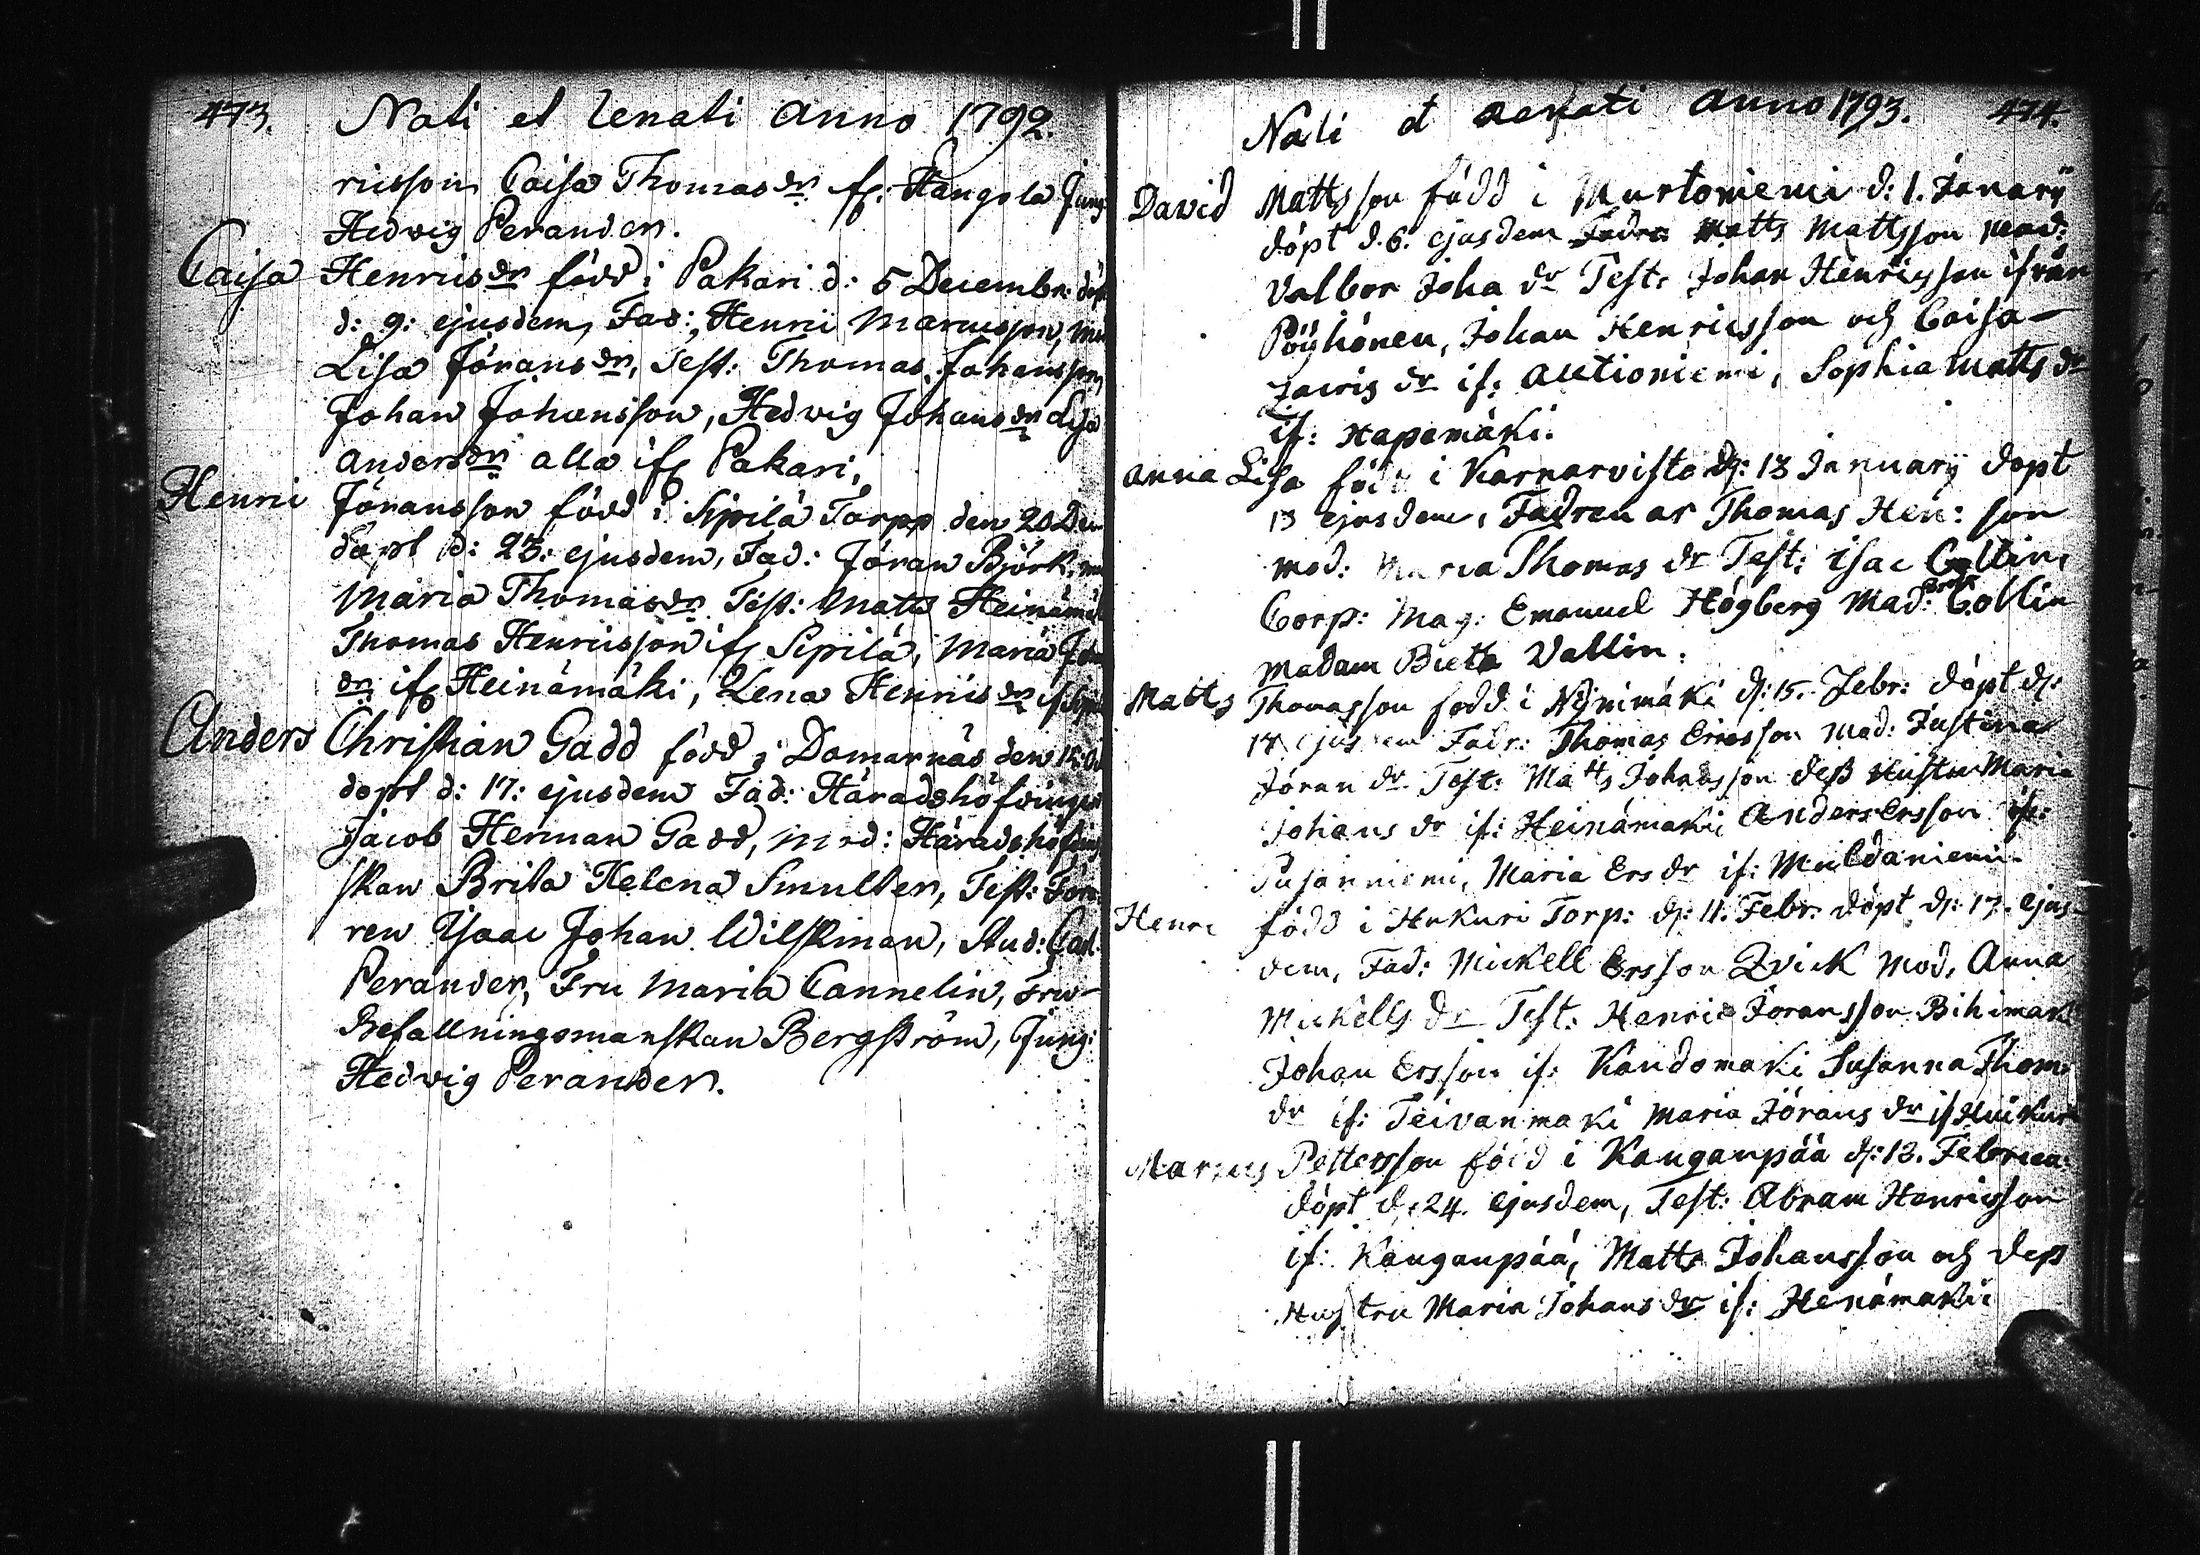 473. Nati et Renati Anno 1792.
ricsson, Caisa Thomasdr. fr. Kangola Jung:
Hedvig Perander.
Caisa Henricsdr född i Pakari d: 5 Decembr. döpt
d: 9: ejusdem, Fad: Henric Marcusson, Mod
Lisa Jöransdr, Test: Thomas Johansson,
Johan Johansson, Hedvig Johansdr Lisa
Andersdr alla ifr Pakari,
Henric Jöransson född i Sipilä Torpp den 20 Dec
döpt d: 23: ejusdem, Fad: Jöran Björk, mo
Maria Thomasdr Test: Matts Heinämä
Thomas Henricsson ifr Sipilä, Maria Joh
dr ifr Heinämäki, Lena Henricsdr if Sipi
Anders Christian Gadd född i Domarnäs den 15:
döpt d: 17: ejusdem Fad: Häradshöfdingen
Jacob Herman Gadd, Mod: Häradshöfding
skan Brita Helena Smulter, Test: Her
ren Isaac Johan Wilskman, Stud: Carl
Perander, Fru Maria Cannelin, Fru
Befallningsmanskan Bergström, Jung:
Hedvig Perander.
Nati et Renati Anno 1793. 474.
David Mattsson född i Murtoniemi d: 1. Janarij
döpt d. 6. ejusdem Fadr. Matts Mattsson Mod:
Valbor Joha dr Test: Johan Henricsson ifrån
Pöyhönen, Johan Henricsson och Caisa
Jacris dr if: Auttioniemi, Sophia Matts dr
if: Hapamäki.
Anna Lisa född i Karnarvisto d: 13 Januarij döpt
13 ejusdem, Fadren ar Thomas Hen: son
mod: Maria Thomas dr Test: Isac Collin,
Corp: Mag: Emanuel Högberg Mad: Brita Collin
Madam Bieta Vallin.
Matts Thomasson född i Nynimäki d: 15. Febr: döpt d:
17 ejusdem Fadr: Thomas Ericsson Mod: Justina
Jöran dr Test: Matts Johansson dess Hustru Maria
Johans dr if: Heinämäki Anders Ersson if:
Pusanniemi, Maria Ers dr if: Muldaniemi.
Henric född i Hukuri Torp: d: 11. Febr. döpt d: 17. ejus-
dem, Fad: Mickell Ersson Qvick Mod, Anna
Mickells dr Test: Henric Joransson Bihimäki
Johan Ersson if: Kandomaki Susanna Thom:
dr if: Teivanmaki Maria Jörans dr if Huikuri
Marcus Pettersson född i Kanganpää d: 13. Februa:
döpt d. 24. ejusdem, Test: Abram Henricsson
if: Kanganpää, Matts Johansson och dess
Hustru Maria Johans dr if: Henämäki